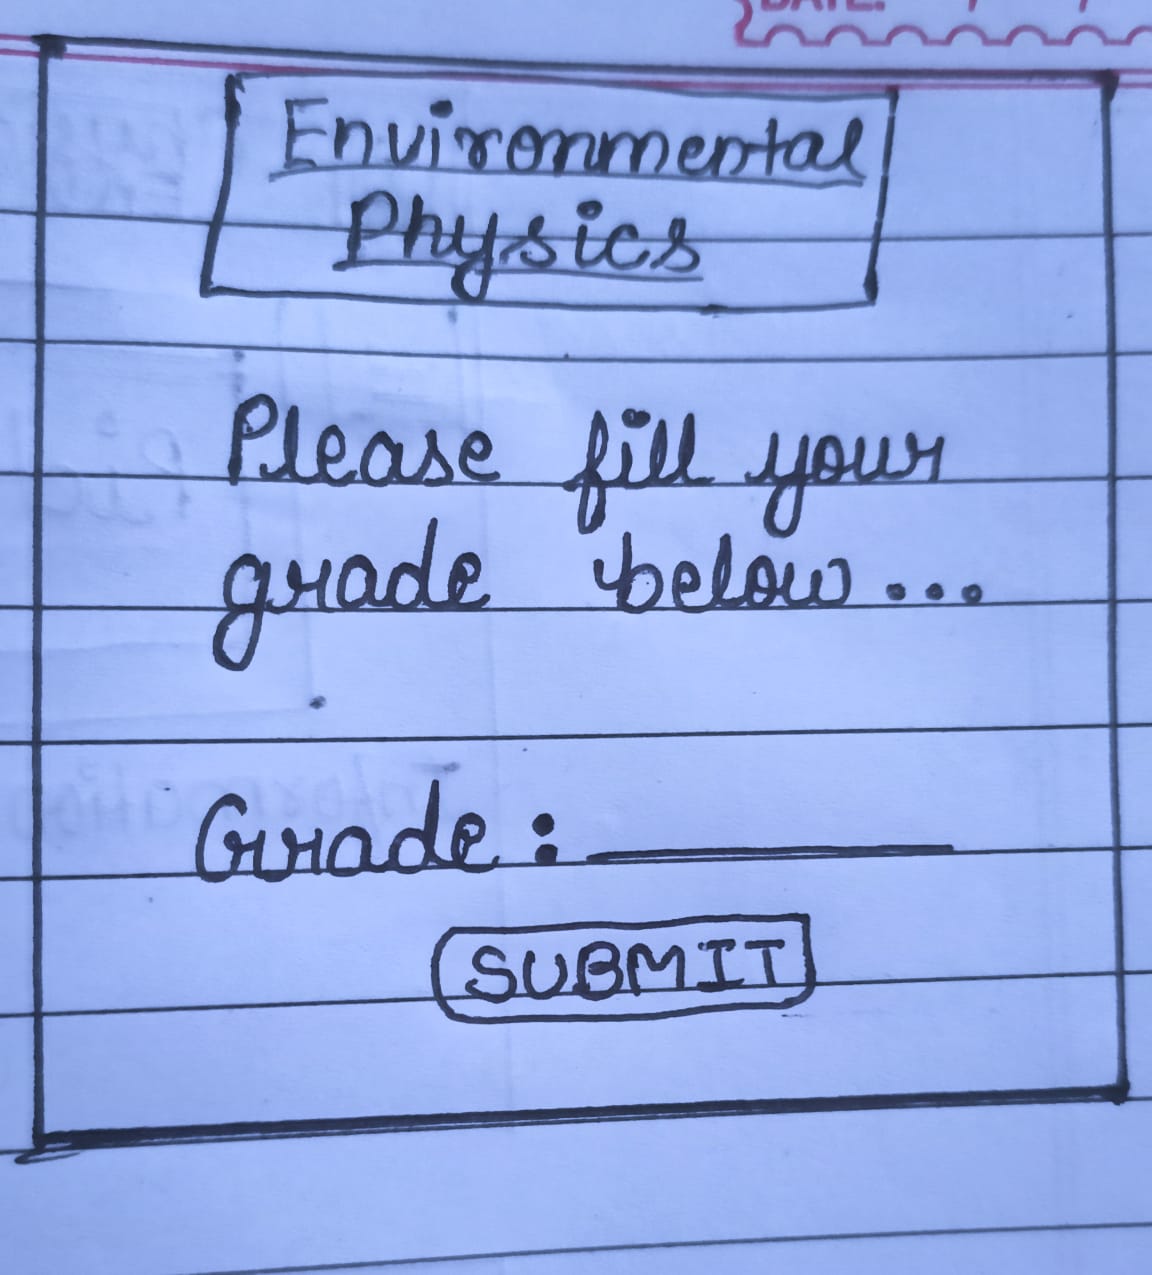 DATE:
Environmental
Physics
Please fill your
grade below...
Grade: ________
SUBMIT